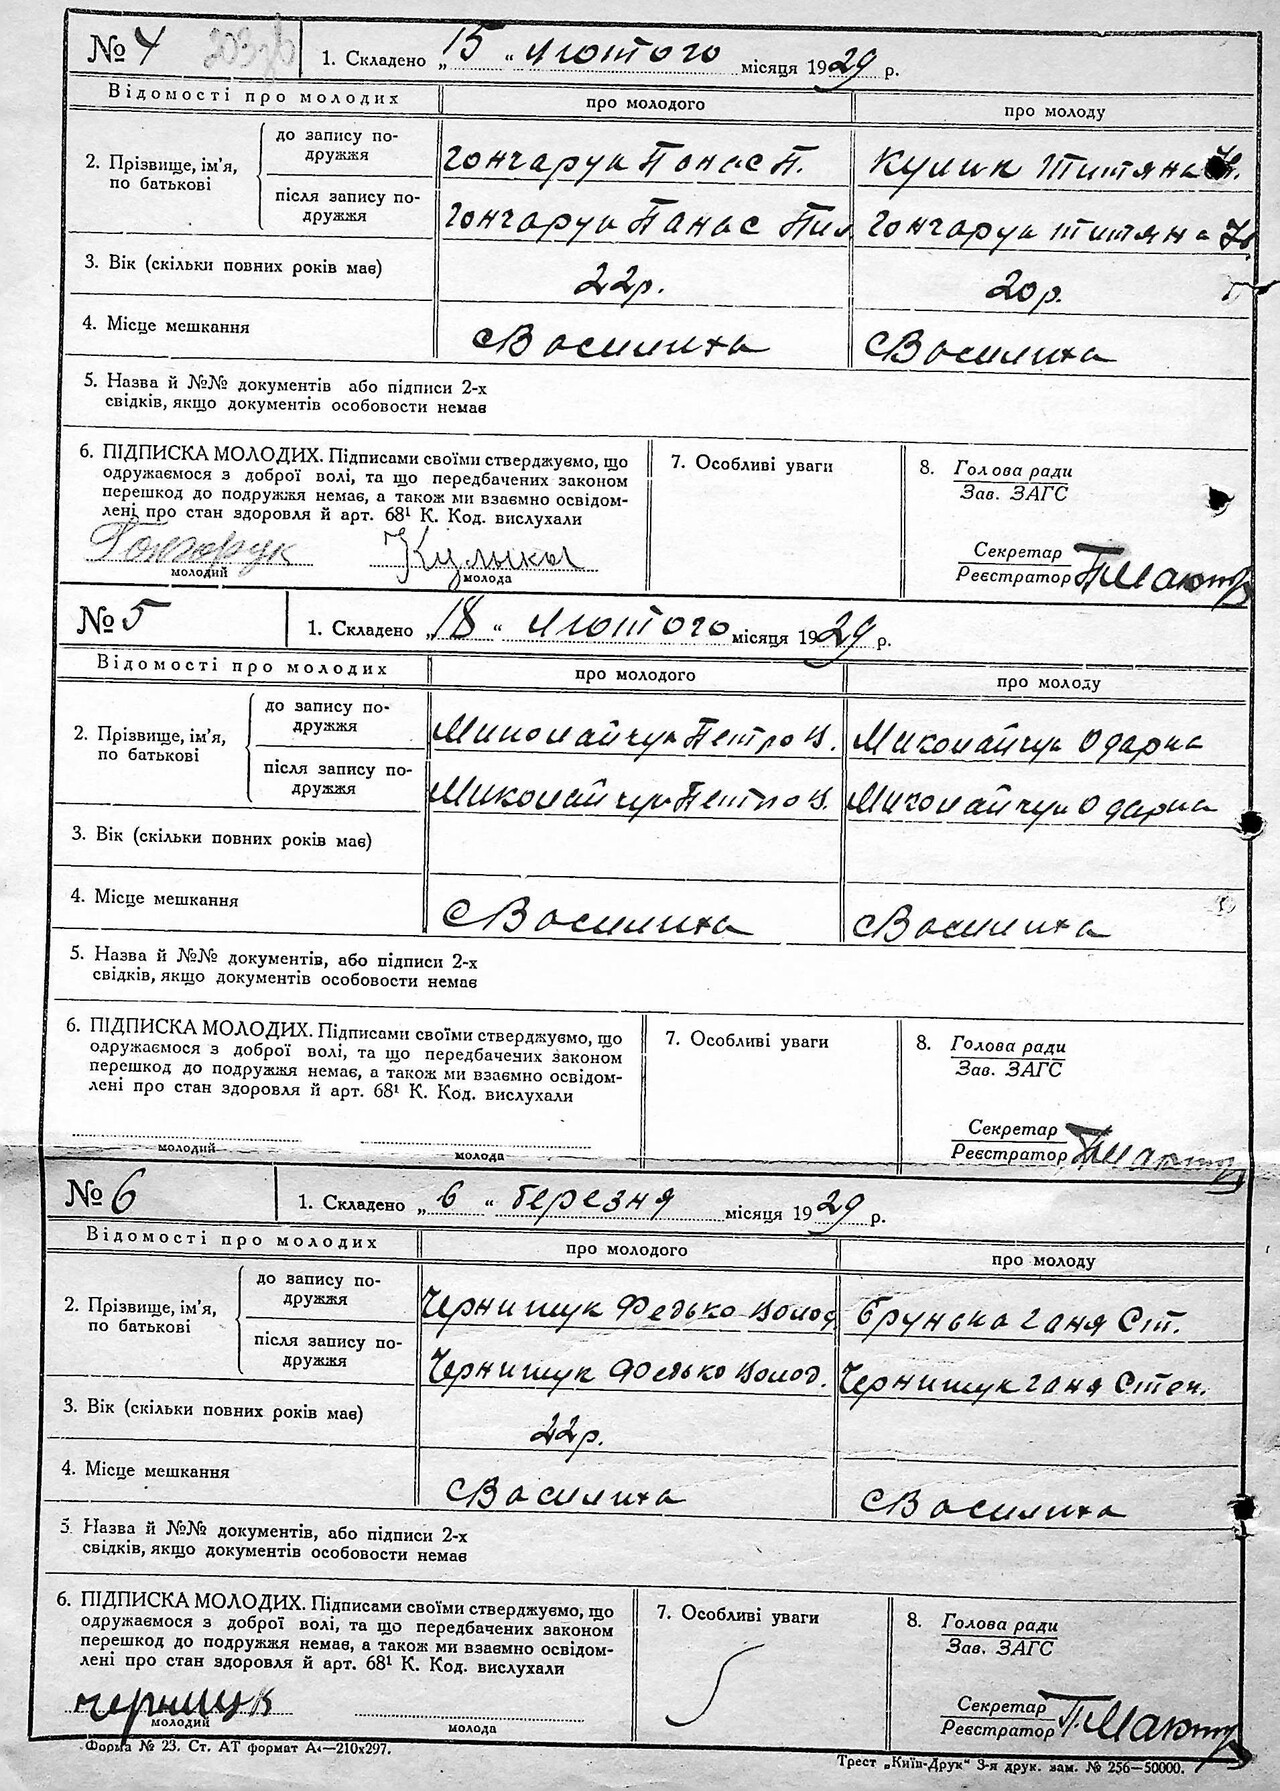 № 4
1. Складено „15“ Лютого місяця 1929 р.
Відомості про молодих про молодого про молоду
2. Прізвище, ім’я, по батькові
до запису подружжя
Гончарук Панас П. Кулик Титяна
після запису подружжя
Гончарук Панас Пил Гончарук Титяна
3. Вік (скільки повних років має) 22р. 20р.
4. Місце мешкання с Василиха с Василиха
5. Назва й №№ документів або підписи 2-х
свідків, якщо документів особовости немає
6. ПІДПИСКА МОЛОДИХ. Підписами своїми стверджуємо, що
одружаємося з доброї волі, та що передбачених законом
перешкод до подружжя немає, а також ми взаємно освідом-
лені про стан здоров’я й арт. 68¹ К. Код. вислухали
Гончарук
молодий молода
7. Особливі уваги
8. Голова ради
Зав. ЗАГС
Секретар
Реєстратор
№ 5
1. Складено „18“ Лютого місяця 1929 р.
Відомості про молодих про молодого про молоду
2. Прізвище, ім’я,
по батькові
до запису по-
дружжя
Миколайчук Петро В. Миколайчук Одарка
після запису по-
дружжя
Миколайчук Петро В. Миколайчук Одарка
3. Вік (скільки повних років має)
4. Місце мешкання с Василиха с Василиха
5. Назва й №№ документів, або підписи 2-х
свідків, якщо документів особовости немає
6. ПІДПИСКА МОЛОДИХ. Підписами своїми стверджуємо, що
одружаємося з доброї волі, та що передбачених законом
перешкод до подружжя немає, а також ми взаємно освідом-
лені про стан здоров’я й арт. 68¹ К. Код. вислухали
молодий молода
7. Особливі уваги
8. Голова ради
Зав. ЗАГС
Секретар
Реєстратор
№ 6
1. Складено „6“ березня місяця 1929 р.
Відомості про молодих про молодого про молоду
2. Прізвище, ім’я,
по батькові
до запису по-
дружжя
Чернишук Федько Волод Брунька Ганя Ст.
після запису по-
дружжя
Чернишук Федько Волод. Чернишук Ганя Степ.
3. Вік (скільки повних років має) 22р.
4. Місце мешкання с Василиха с Василиха
5. Назва й №№ документів, або підписи 2-х
свідків, якщо документів особовости немає
6. ПІДПИСКА МОЛОДИХ. Підписами своїми стверджуємо, що
одружаємося з доброї волі, та що передбачених законом
перешкод до подружжя немає, а також ми взаємно освідом-
лені про стан здоров’я й арт. 68¹ К. Код. вислухали
молодий молода
7. Особливі уваги
8. Голова ради
Зав. ЗАГС
Секретар
Реєстратор
Форма № 23. Ст. АТ формат А₄—210х297.
Трест „Київ-Друк“ 3-я друк. зам. № 256—50000.